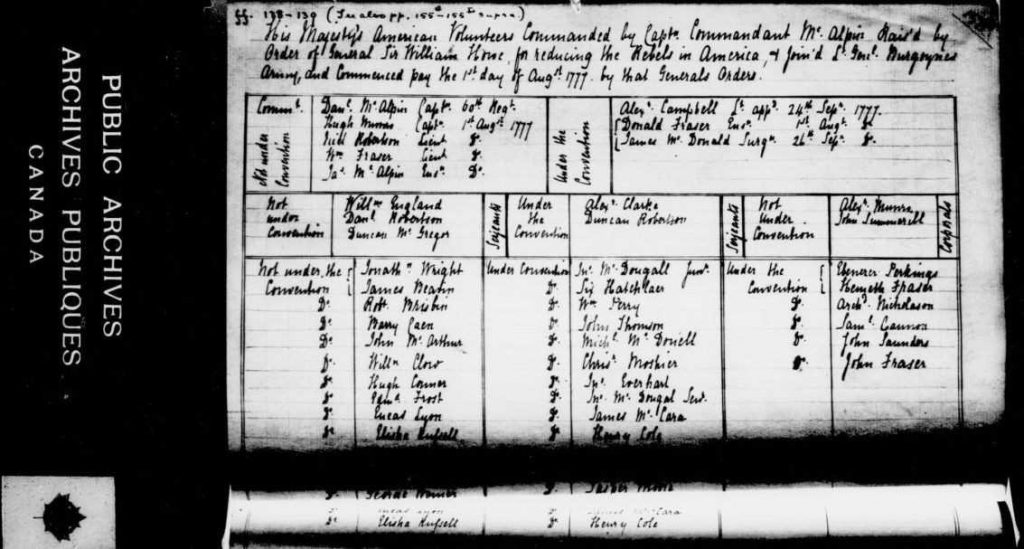 PUBLIC ARCHIVES
ARCHIVES PUBLIQUES
CANADA
ff. 138-139 (See also pp. 155a-155b supra)
His Majesty's American Volunteers Commanded by Captn. Commandant Mc. Alpin. Rais'd by
Order of General Sir William Howe, for reducing the Rebels in America, & join'd Lt. Genl. Burgoynes
Army, and Commenced pay the 1st day of Augst 1777. by that Generals Orders.
Commt. Danl. Mc. Alpin Captn. 60th Regt.
Hugh Munro Captn. 1st Augst. 1777
Neil Robertson Lieut Do.
Wm. Fraser Lieut Do.
Jas. Mc. Alpin Ensn. Do.
Not under Convention
Under the Convention
Alexr. Campbell Lt. appd. 24th Sepr. 1777.
Donald Fraser Ensn. 1st Augt. Do.
James Mc. Donald Surgn. 26th Sepr. Do.
Not under Convention
Willm England
Danl. Robertson
Duncan Mc. Gregor
Serjeants
Under the Convention
Alexr. Clarke
Duncan Robertson
Serjeants
Not Under Convention
Alexr. Munro
John Summerell
Corporals
Not under the Convention
Jonathn Wright
James
Do. Robt. Brisbin
Do. Barry
Do. John Mc. Arthur
Do. Willm Clow
Do. Hugh Conner
Do. Frost
Do. Lucas Lyon
Do. Elisha Russell
Under Convention Jno. Mc. Dougall Junr.
Do.
Do. Wm Perry
Do. John Thomson
Do. Michl. Mc. Donell
Do. Chrisr. Moshier
Do. Jno. Everhart
Do. Jno. Mc. Dougal Senr.
Do. James Mc. Cara
Do. Henry Cole
Under the Convention
Ebenezer Perkings
Kenneth Fraser
Do. Archd. Nicholason
Do. Saml. Gannon
Do. John Saunders
Do. John Fraser
Do. George
Do. Lucas Lyon
Do. Mc. Cara
Do. Elisha Russell
Do. Henry Cole